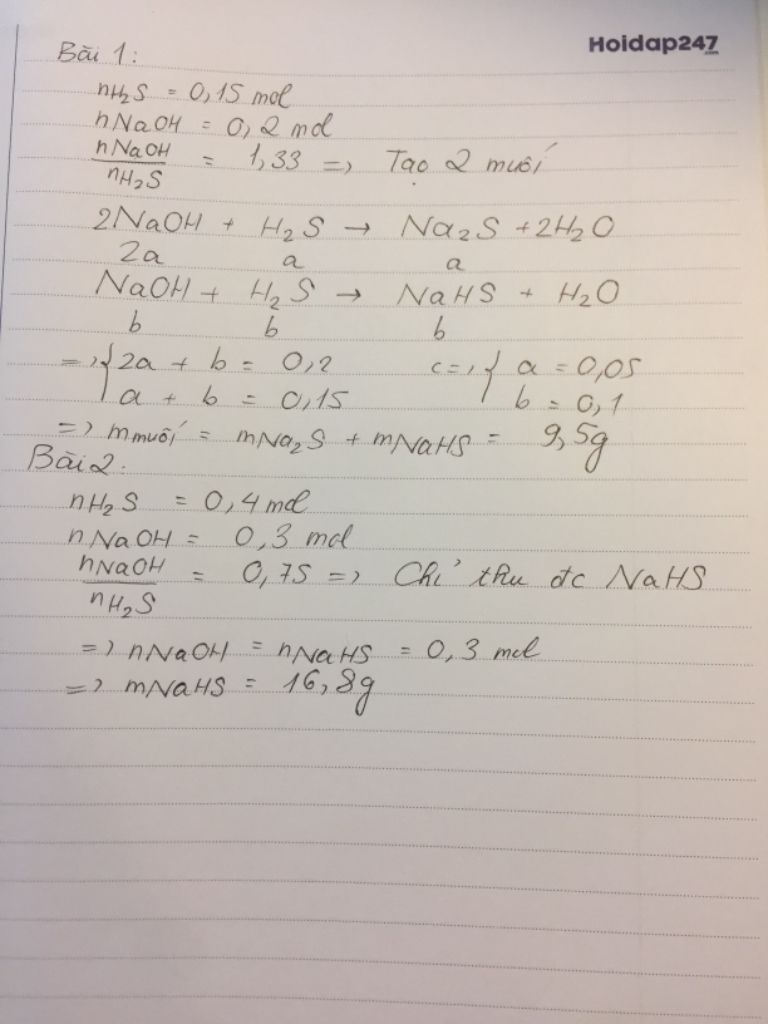 Hoidap247
.com
Bài 1:
nH₂S = 0,15 mol
nNaOH = 0,2 mol
nNaOH / nH₂S = 1,33 => Tạo 2 muối
2NaOH + H₂S → Na₂S + 2H₂O
2a a a
NaOH + H₂S → NaHS + H₂O
b b b
=> { 2a + b = 0,2 <=> { a = 0,05
a + b = 0,15 b = 0,1
=> mmuối = mNa₂S + mNaHS = 9,5g
Bài 2.
nH₂S = 0,4 mol
nNaOH = 0,3 mol
nNaOH / nH₂S = 0,75 => Chỉ thu đc NaHS
=> nNaOH = nNaHS = 0,3 mol
=> mNaHS = 16,8g